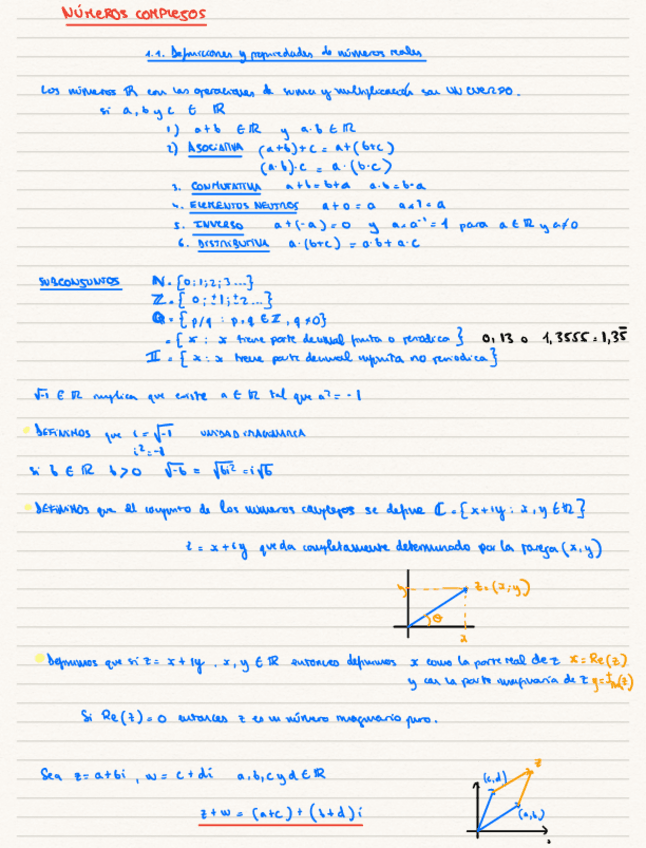 NÚMEROS COMPLEJOS
1.1. Definiciones y propiedades de números reales
Los números ℝ con las operaciones de suma y multiplicación son UN CUERPO.
si a, b y c ∈ ℝ
1) a+b ∈ ℝ y a·b ∈ ℝ
2) ASOCIATIVA (a+b)+c = a+(b+c)
(a·b)·c = a·(b·c)
3. CONMUTATIVA a+b=b+a a·b=b·a
4. ELEMENTOS NEUTROS a+0=a a·1=a
5. INVERSO a+(-a)=0 y a·a⁻¹=1 para a∈ℝ y a≠0
6. DISTRIBUTIVA a·(b+c) = a·b+a·c
SUBCONJUNTOS ℕ = {0;1;2;3...}
ℤ = {0;±1;±2...}
ℚ = {p/q : p,q ∈ ℤ, q≠0}
= {x : x tiene parte decimal finita o periódica} 0,13 o 1,3555=1,35̅
𝕀 = {x : x tiene parte decimal infinita no periódica}
√-1 ∈ ℝ implica que existe a∈ℝ tal que a²=-1
DEFINIMOS que i=√-1 UNIDAD IMAGINARIA
i²=-1
si b∈ℝ b>0 √-b = √bi² = i√b
DEFINIMOS que el conjunto de los números complejos se define ℂ={x+iy : x,y∈ℝ}
z = x+iy queda completamente determinado por la pareja (x,y)
y z=(x;y)
θ
x
Definimos que si z=x+iy, x,y∈ℝ entonces definimos x como la parte real de z x=Re(z)
y con la parte imaginaria de z y=Im(z)
Si Re(z)=0 entonces z es un número imaginario puro.
Sea z=a+bi, w=c+di a,b,c y d∈ℝ
z+w = (a+c)+(b+d)i
(c,d)
(a,b)